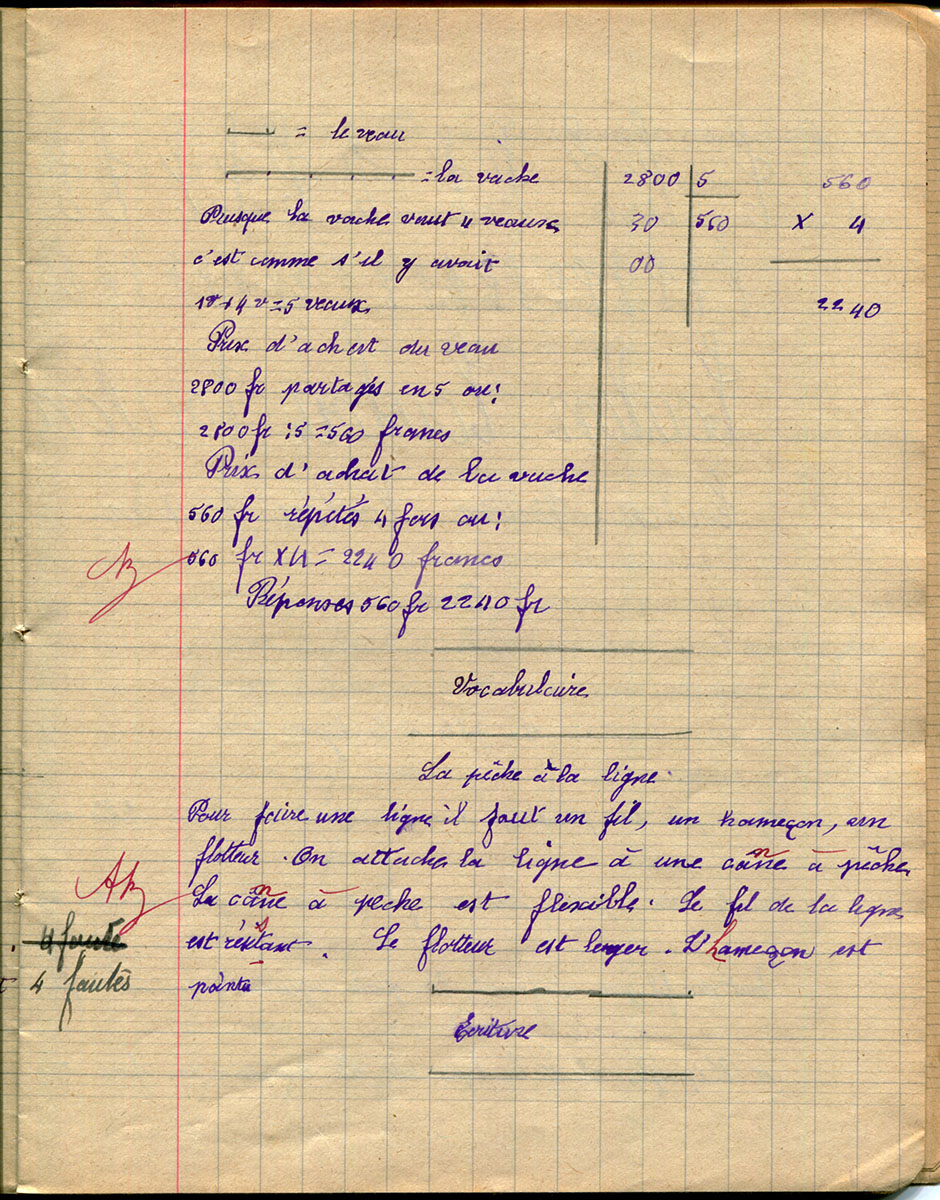 = le veau
= la vache
Puisque la vache vaut 4 veaux
c'est comme s'il y avait
1v+4v=5 veaux
Prix d'achat du veau
2800 fr partagés en 5 ou:
2800 fr :5 = 560 francs
Prix d'achat de la vache
560 fr répétés 4 fois ou:
560 fr X4 = 2240 francs
Réponses 560 fr 2240 fr
2800 5 560
30 560 X 4
00
2240
Vocabulaire
La pêche à la ligne
Pour faire une ligne il faut un fil, un hameçon, un
flotteur. On attache la ligne à une canne à pêche
La canne à peche est flexible. Le fil de la ligne
est résistant. Le flotteur est lenger. L'hameçon est
pointu
4 faute
4 fautes
Ecriture